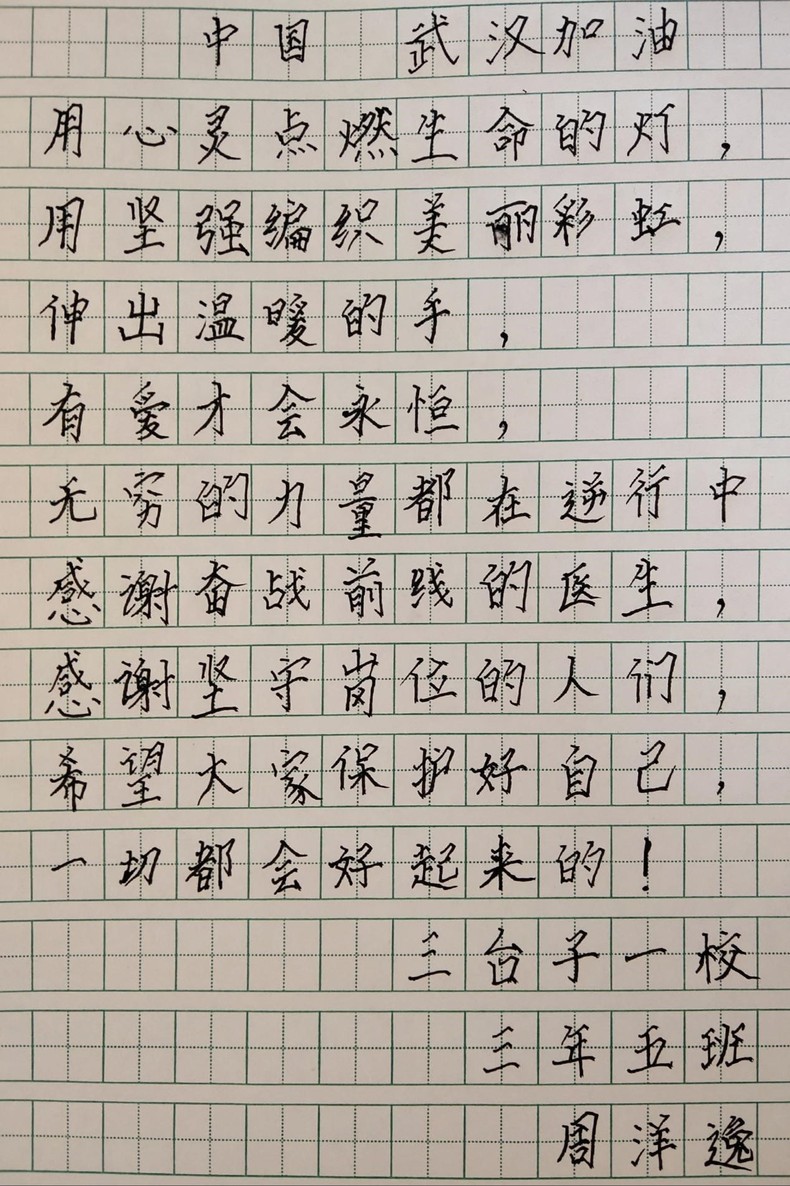 中国 武汉加油
用心灵点燃生命的灯，
用坚强编织美丽彩虹，
伸出温暖的手，
有爱才会永恒，
无穷的力量都在逆行中
感谢奋战前线的医生，
感谢坚守岗位的人们，
希望大家保护好自己，
一切都会好起来的！
三台子一校
三年五班
周洋逸